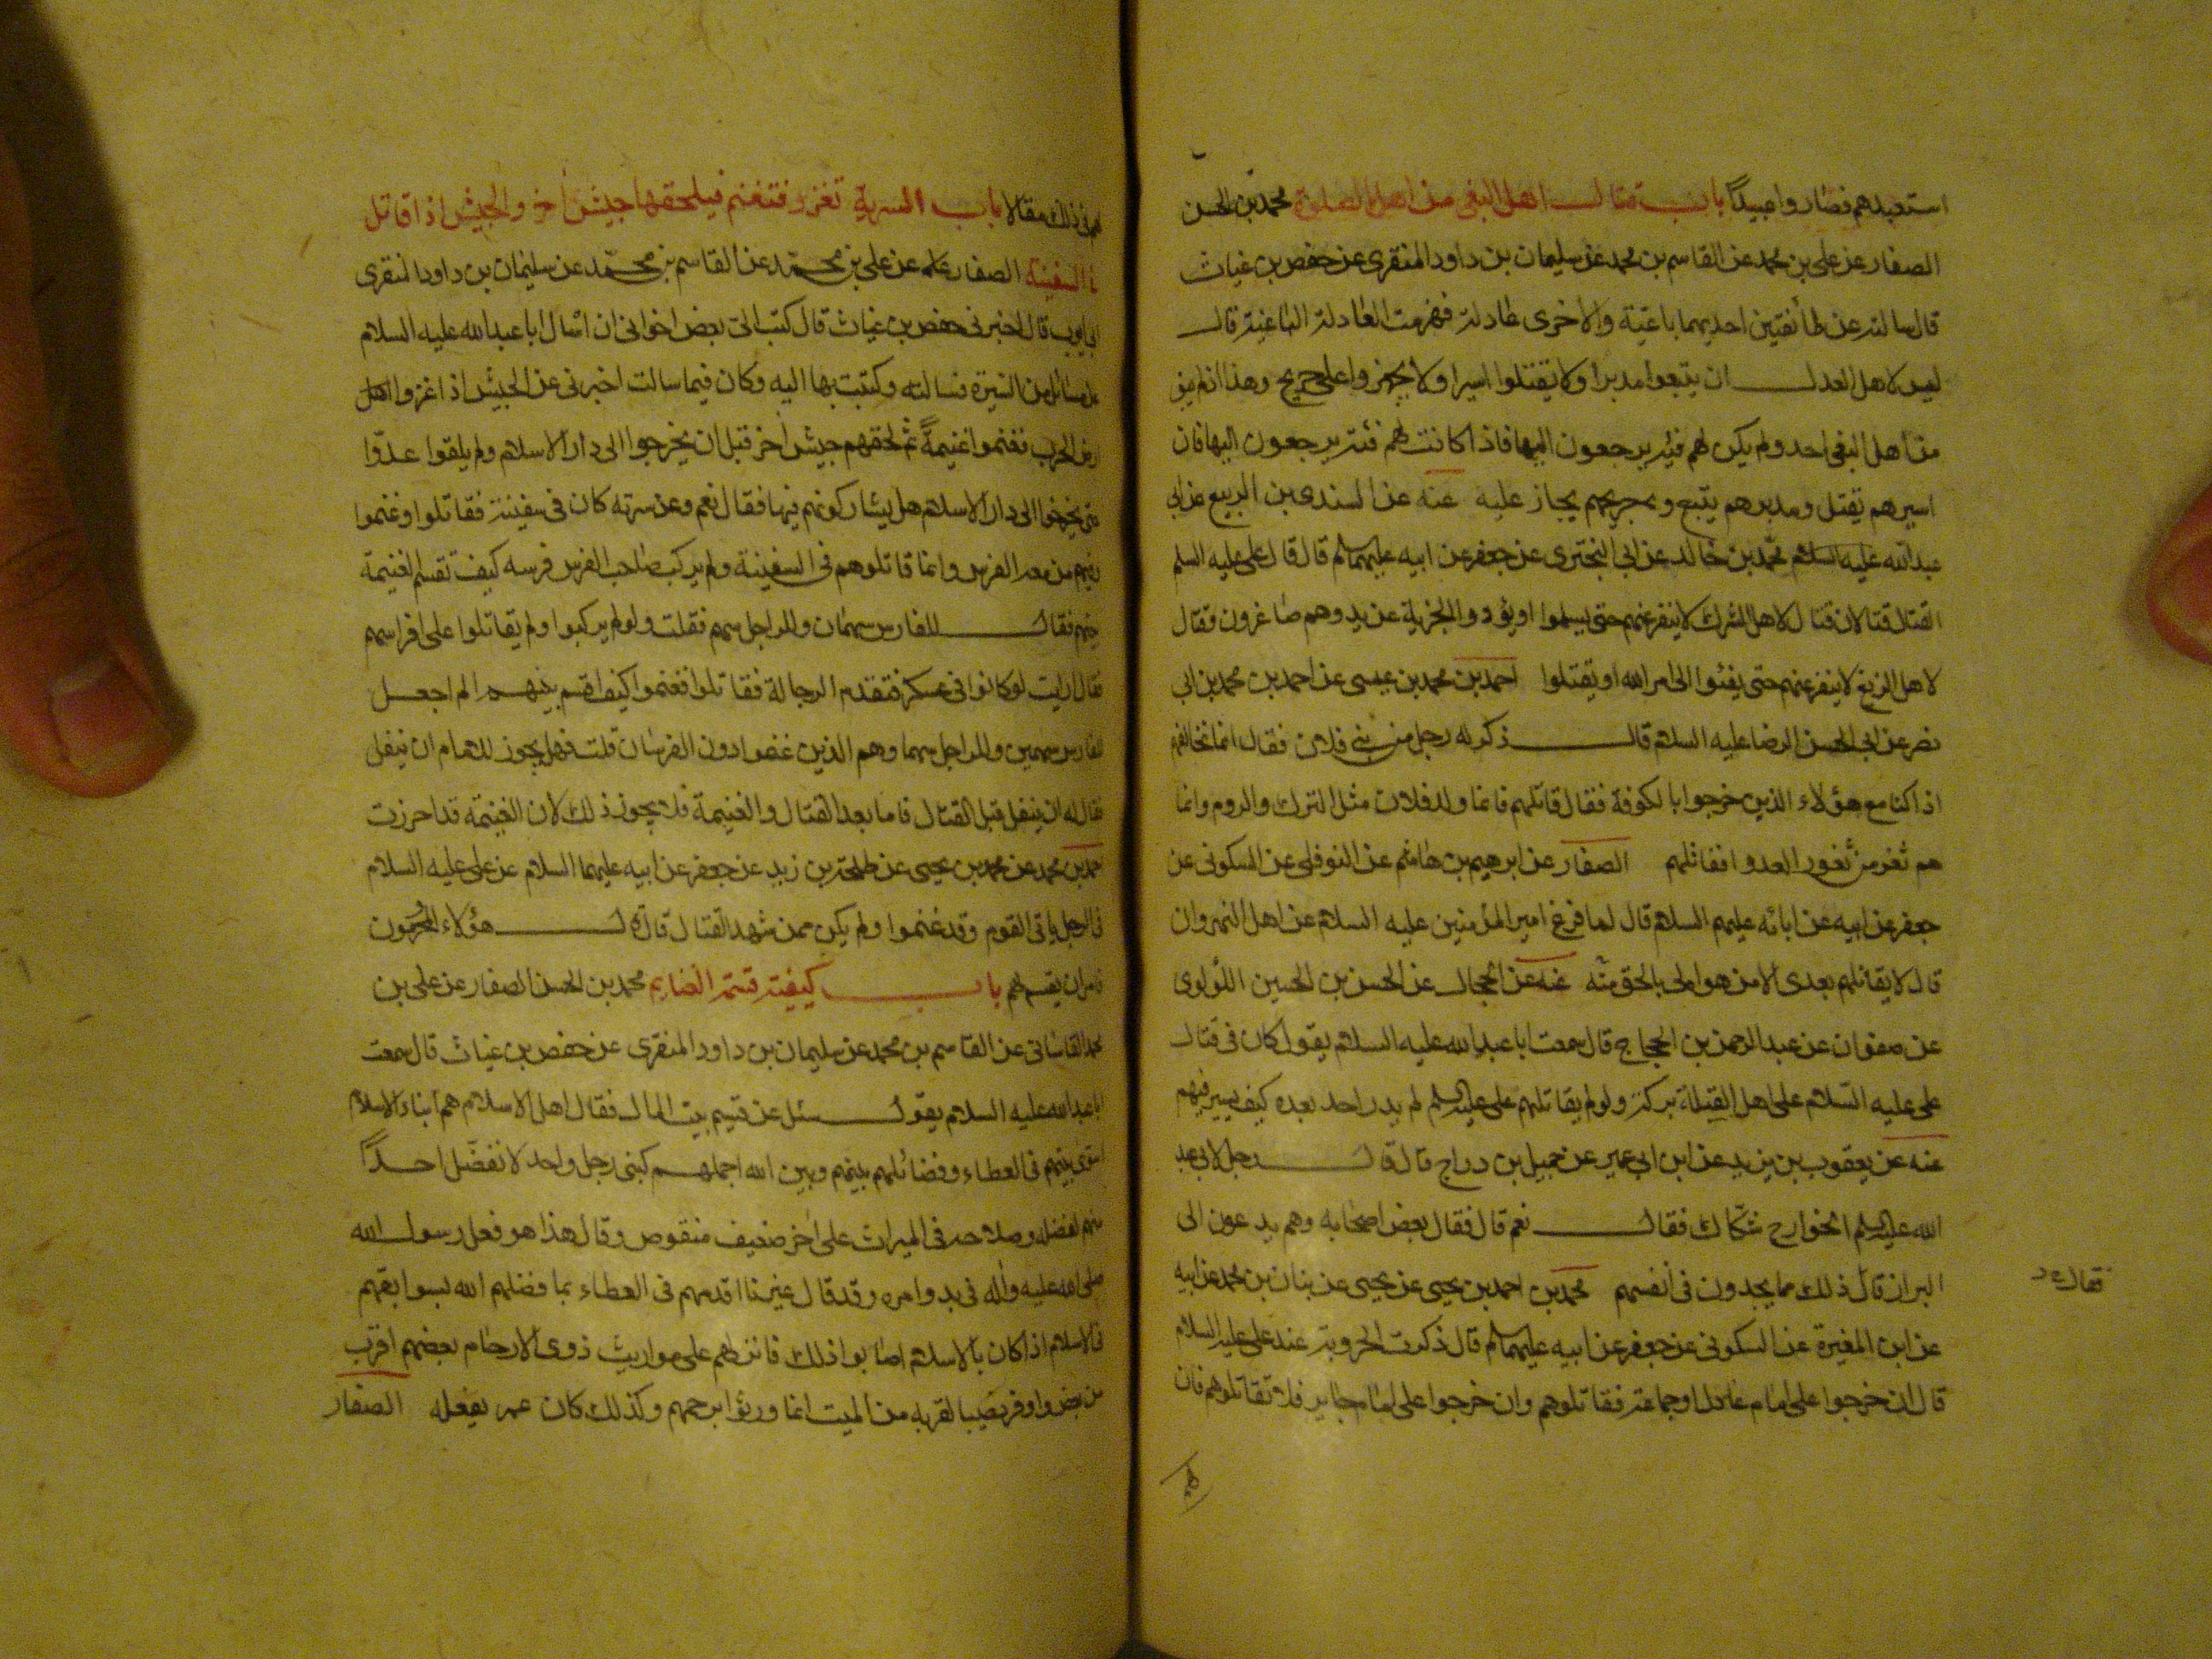 استعبدهم فصاروا عبيداً باب قتال اهل البغى من اهل الصلوة محمد بن الحسن
الصفار عن على بن محمد عن القاسم بن محمد عن سليمان بن داود المنقرى عن حفص بن غياث
قال سالته عن طائفتين احديهما باغية والاخرى عادلة فهزمت العادلة الباغية قال
ليس لاهل العدل ان يتبعوا مدبرا ولا يقتلوا اسيرا ولا يجهزوا على جريح وهذا اذا لم يبق
من اهل البغى احد ولم يكن لهم فئة يرجعون اليها فاذا كانت لهم فئة يرجعون اليها فان
اسيرهم يقتل ومدبرهم يتبع وجريحهم يجاز عليه عنه عن السندى بن الربيع عن ابى
عبد الله عليه السلام محمد بن خالد عن ابى البخترى عن جعفر عن ابيه عليهما السلم قال قال على عليه السلم
القتال قتالان قتال لاهل الشرك لا ينفر عنهم حتى يسلموا او يؤدوا الجزية عن يد وهم صاغرون وقتال
لاهل الزيغ لا ينفر عنهم حتى يفيئوا الى امر الله او يقتلوا احمد بن محمد بن عيسى عن احمد بن محمد بن ابى
نصر عن ابى الحسن الرضا عليه السلام قال ذكر له رجل من بنى فلان فقال انما نخالفهم
اذا كنا مع هؤلاء الذين خرجوا بالكوفة فقال قاتلهم فانما ولد فلان مثل الترك والروم وانما
هم ثغر من ثغور العدو فقاتلهم الصفار عن ابرهيم بن هاشم عن النوفلى عن السكونى عن
جعفر عن ابيه عن ابائه عليهم السلام قال لما فرغ امير المؤمنين عليه السلام من اهل النهروان
قال لا يقاتلهم بعدى الا من هو اولى بالحق منه عنه عن الحجال عن الحسن بن الحسين اللؤلوى
عن صفوان عن عبد الرحمن بن الحجاج قال سمعت ابا عبد الله عليه السلام يقول كان فى قتال
على عليه السلام على اهل القبلة بركة ولو لم يقاتلهم على عليه السلم لم يدر احد بعده كيف يسير فيهم
عنه عن يعقوب بن يزيد عن ابن ابى عمير عن جميل بن دراج قال قال رجل لابى عبد
الله عليه السلم الخوارج شكاك فقال نعم قال فقال بعض اصحابه وهم يدعون الى
البراز قال ذلك مما يجدون فى انفسهم محمد بن احمد بن يحيى عن يحيى عن بنان بن محمد عن ابيه
عن ابن المغيرة عن السكونى عن جعفر عن ابيه عليهما السلم قال ذكرت الحرورية عند على عليه السلام
قال ان خرجوا على امام عادل او جماعة فقاتلوهم وان خرجوا على امام جاير فلا تقاتلوهم فان
لهم
لهم فى ذلك مقالا باب السرية تغزو فتغنم فيلحقها جيش اخر والجيش اذا قاتل
فى السفينة الصفار عن على بن محمد عن القاسم بن محمد عن سليمان بن داود المنقرى
ابى ايوب قال اخبرنى حفص بن غياث قال كتب الى بعض اخوانى ان اسال ابا عبد الله عليه السلام
عن مسائل من السيرة فسالته وكتبت بها اليه وكان فيما سالت اخبرنى عن الجيش اذا غزوا اهل
ارض الحرب فغنموا غنيمة ثم لحقهم جيش اخر قبل ان يخرجوا الى دار الاسلام ولم يلقوا عدوا
حتى يخرجوا الى دار الاسلام هل يشاركونهم فيها فقال نعم وعن سرية كان فى سفينة فقاتلوا وغنموا
وفيهم من معه الفرس وانما قاتلوهم فى السفينة ولم يركب صاحب الفرس فرسه كيف تقسم الغنيمة
بينهم فقال للفارس سهمان وللراجل سهم فقلت ولو لم يركبوا ولم يقاتلوا على افراسهم
فقال ارايت لو كانوا فى عسكر فتقدم الرجالة فقاتلوا فغنموا كيف اقسم بينهم الم اجعل
للفارس سهمين وللراجل سهما وهم الذين غنموا دون الفرسان قلت فهل يجوز للامام ان ينفل
فقال له ان ينفل قبل القتال فاما بعد القتال والغنيمة فلا يجوز ذلك لان الغنيمة قد احرزت
احمد بن محمد عن محمد بن يحيى عن طلحة بن زيد عن جعفر عن ابيه عليهما السلام عن على عليه السلام
فى الرجل ياتى القوم وقد غنموا ولم يكن ممن شهد القتال قال هؤلاء المحرومون
فامر ان يقسم لهم باب كيفية قسمة الغنايم محمد بن الحسن الصفار عن على بن
محمد القاسانى عن القاسم بن محمد عن سليمان بن داود المنقرى عن حفص بن غياث قال سمعت
ابا عبد الله عليه السلام يقول سئل عن قسم بيت المال فقال اهل الاسلام هم ابناء الاسلام
اسوى بينهم فى العطاء وفضائلهم بينهم وبين الله اجملهم كبنى رجل واحد لا نفضل احداً
منهم لفضله وصلاحه فى الميراث على اخر ضعيف منقوص وقال هذا هو فعل رسول الله
صلى الله عليه واله فى بدو امره وقد قال غيرنا اقدمهم فى العطاء بما فضلهم الله بسوابقهم
فى الاسلام اذا كان بالاسلام اصابوا ذلك فانزلهم على مواريث ذوى الارحام بعضهم اقرب
من بعض واوفر نصيبا لقربه من الميت انما ورثوا برحمهم وكذلك كان عمر يفعله الصفار